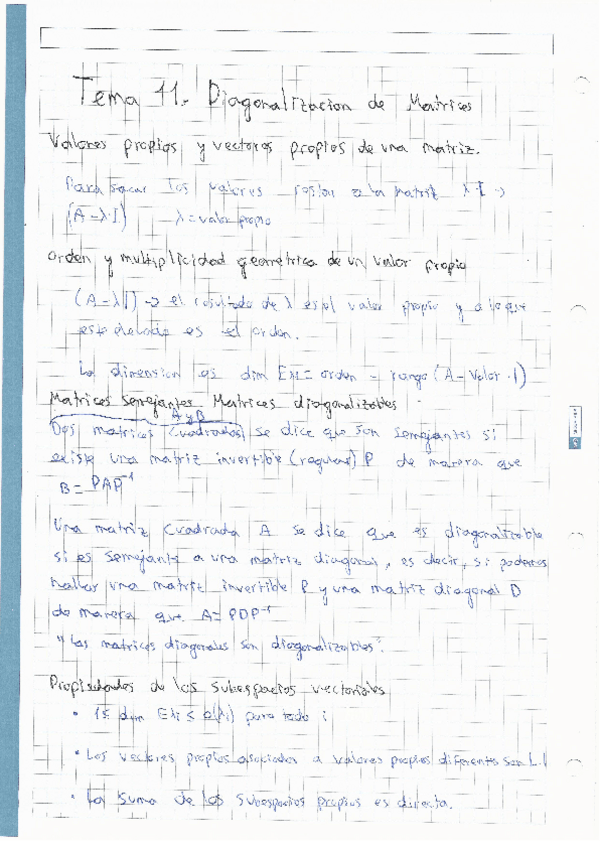 Tema 11. Diagonalización de Matrices
Valores propios y vectores propios de una matriz.
Para sacar los valores restar a la matriz λ·I →
(A-λ·I) λ = valor propio
orden y multiplicidad geométrica de un valor propio
(A-λI) → el resultado de λ es el valor propio y a lo que
este elevado es el orden.
La dimension es dim Eλi = orden - rango (A - Valor · I)
Matrices semejantes Matrices diagonalizables
A y B
Dos matrices (cuadradas) se dice que son semejantes si
existe una matriz invertible (regular) P de manera que
B = PAP⁻¹
Una matriz cuadrada A se dice que es diagonalizable
si es semejante a una matriz diagonal, es decir, si podemos
hallar una matriz invertible P y una matriz diagonal D
de manera que A = PDP⁻¹
"Las matrices diagonales son diagonalizables".
Propiedades de los subespacios vectoriales
· 1 ≤ dim Eλi ≤ o(λi) para todo i
· Los vectores propios asociados a valores propios diferentes son L.I
· La suma de los subespacios propios es directa.